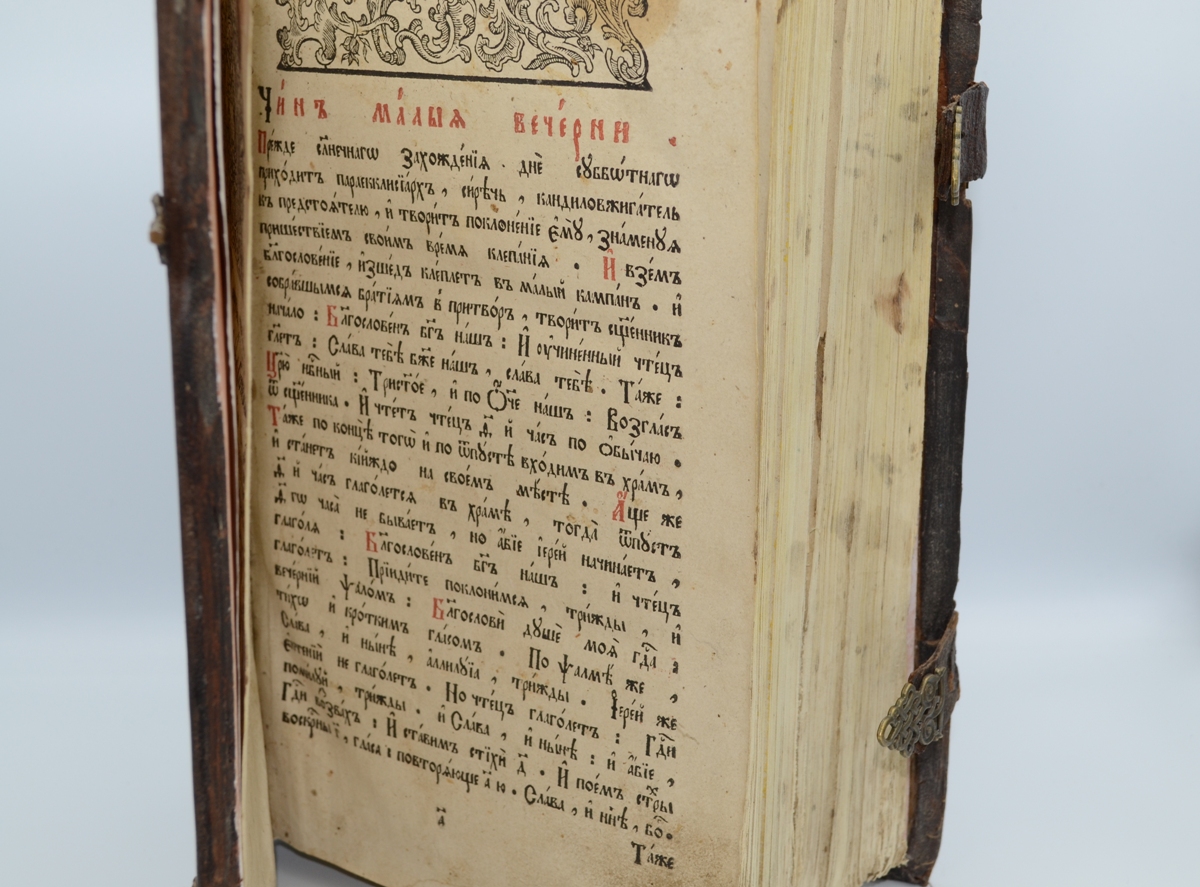 Чи́нъ ма́лыѧ вече́рни .
Пре́жде сл҃нечнагѡ захожде́нїѧ . днѐ сꙋббѡ́тнагѡ
прихо́дитъ параекклисїа́рхъ , си́рѣчь , кандиловжига́тель
къ предстоѧ́телю , и҆ твори́тъ поклоне́нїе є҆мꙋ̀ , зна́менꙋѧ
прише́ствїемъ свои́мъ вре́мѧ клепа́нїѧ . И҆ взе́мъ
бл҃гослове́нїе , и҆зше́дъ кле́плетъ въ ма́лый кампа́нъ . и҆
собра́вшымсѧ бра́тїѧмъ в̾ притво́ръ , твори́тъ сщ҃е́нникъ
нача́ло : Бл҃гослове́нъ бг҃ъ на́шъ : И҆ ᲂу҆чине́нный чте́цъ
гл҃етъ : Сла́ва тебѣ̀ бж҃е на́шъ , сла́ва тебѣ̀ . Та́же :
Цр҃ю̀ нб҃ный : Трист҃о́е , и҆ по Ѻ҆́ч҃е на́шъ : Возгла́съ
ѿ сщ҃е́нника . И҆ чте́тъ чте́цъ д҃ . й ча́съ по ѻ҆бы́чаю .
Та́же по концѣ̀ тогѡ̀ и҆ по ѿпꙋ́стѣ вхо́димъ въ хра́мъ ,
и҆ ста́нетъ кі́йждо на свое́мъ мѣ́стѣ . А҆́ще же
д҃ й ча́съ глаго́летсѧ въ хра́мѣ , тогда̀ ѿпꙋ́стъ
д҃ гѡ часа̀ не быва́етъ , но а҆́бїе і҆ере́й начина́етъ ,
глаго́лѧ : Бл҃гослове́нъ бг҃ъ на́шъ : и҆ чте́цъ
глаго́летъ : Прїиди́те поклони́мсѧ , три́жды , и҆
вече́рнїй ѱало́мъ : Бл҃гословѝ дꙋшѐ моѧ̀ гд҇а :
ти́хѡ и҆ кро́ткимъ гла́сомъ . По ѱалмѣ́ же ,
Сла́ва , и҆ ны́нѣ , а҆ллилꙋ́їа , три́жды . І҆ере́й же
є҆ктенїй не глаго́летъ . Но чте́цъ глаго́летъ : Гд҇и
поми́лꙋй , три́жды . и҆ Сла́ва , и҆ ны́нѣ : и҆ а҆́бїе ,
Гд҇и воззва́хъ : И҆ ста́вимъ стїхѝ д҃ . И҆ пое́мъ ст҇ры
воскр҇ны , гла́са і повторѧ́юще а҃ ю . Сла́ва , и҆ нн҃ѣ , бо҇ .
а҃
Та́же